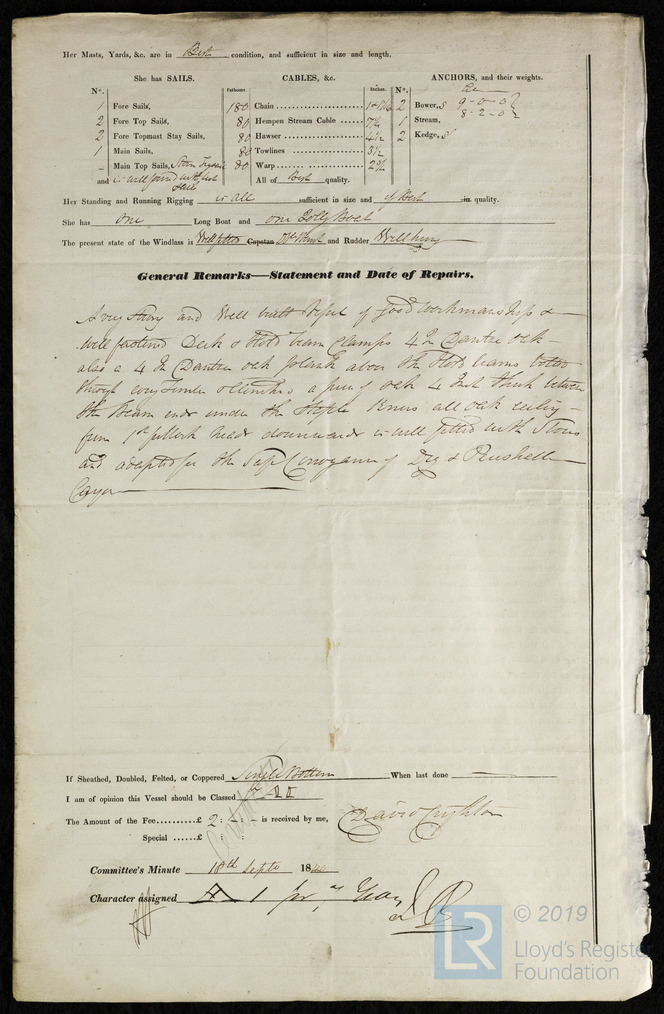 Her Masts, Yards, &c. are in Best condition, and sufficient in size and length.
She has SAILS. CABLES, &c. ANCHORS, and their weights.
N°. Fathoms. Inches. N°.
1 Fore Sails, 180 Chain 2 Bower,s 9-0-0
2 Fore Top Sails, 80 Hempen Stream Cable 7½ 1 Stream, 8-2-0
2 Fore Topmast Stay Sails, 80 Hawser 4½ 2 Kedge,s
1 Main Sails, 80 Towlines 3½
– Main Top Sails, 80 Warp 2½
and is well found with
All of Best quality.
Her Standing and Running Rigging is all sufficient in size and of Best in quality.
She has One Long Boat and one Jolly Boat
The present state of the Windlass is Well fitted Capstan and Rudder Well hung
General Remarks—Statement and Date of Repairs.
A very Strong and Well built Vessel of good workmanship &
well fastened Deck & Hold beam clamps 4 In Dantzic oak
also a 4 In Dantzic oak plank above the Hold beams bolted
through every timber & clenched a piece of oak 4 Inch thick between
the beam ends under the Staple Knees all oak ceiling
from 1st futtock heads downwards is well fitted with
and adapted for the Safe Conveyance of Dry & Perishable
Cargo
If Sheathed, Doubled, Felted, or Coppered Single Bottom When last done
I am of opinion this Vessel should be Classed
The Amount of the Fee £ 2 : - : - is received by me, David Crighton
Special £ : :
Committee's Minute 18th Septr 1840
Character assigned A 1 for Years
© 2019
LR
Lloyd's Register
Foundation